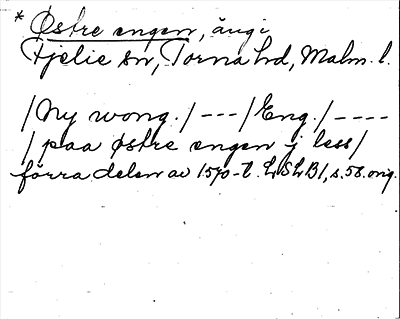 * Østre engen, äng i
Fjelie sn, Torna hd, Malm. l.
/Ny wong./ --- /Eng./ ----
/ paa østre engen j less/
förra delen av 1570-t. LSLB1, s. 58. orig.